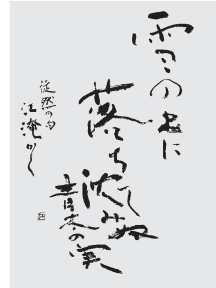 雪の上に
落ちて沈みぬ
青木の実
徒然の句
かく